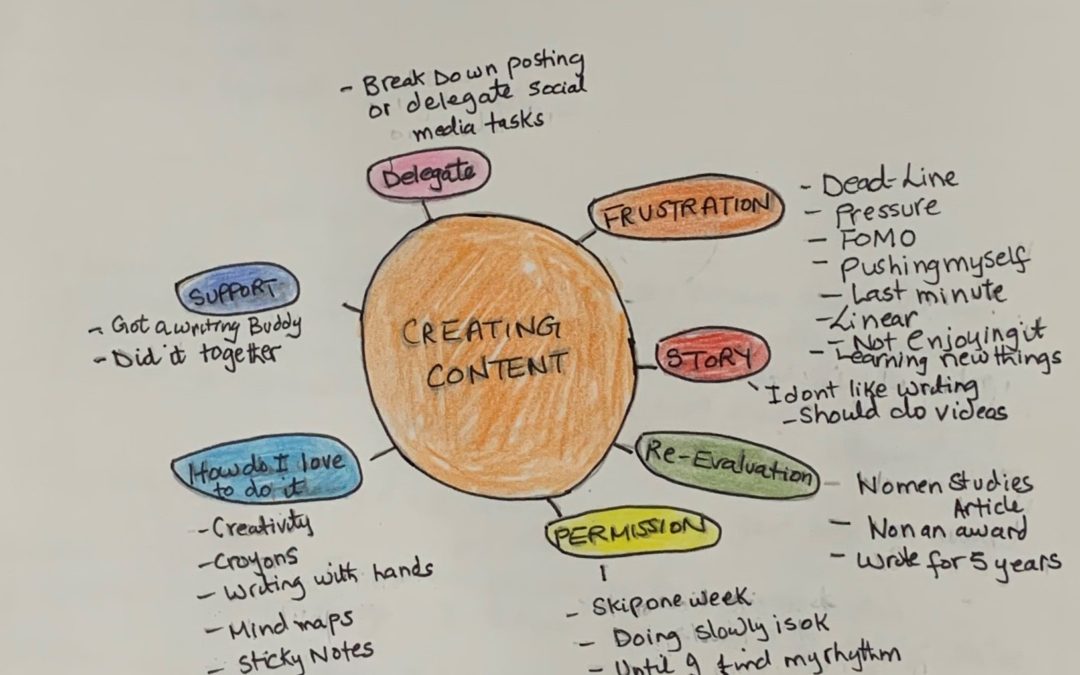 - Break Down posting
or delegate social
media tasks
Delegate
FRUSTRATION
- Dead-Line
- Pressure
- FOMO
- Pushing myself
- Last minute
- Linear
- Not Enjoying it
- Learning new things
STORY
I dont like writing
- Should do videos
Re-Evaluation
- Women Studies
Article
- Won an award
- Wrote for 5 years
PERMISSION
- Skip one week
- Doing slowly is ok
- Until I find my rhythm
How do I love
to do it
- Creativity
- Crayons
- Writing with hands
- Mind maps
- Sticky Notes
SUPPORT
- Got a writing Buddy
- Did it together
CREATING
CONTENT